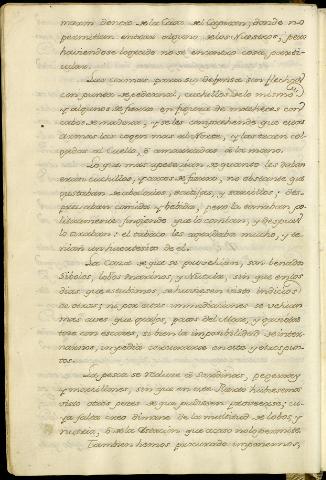 maron dentro de la Casa del Capitan; donde no
permitian entrase alguno de los Nuestros, pero
haviendose logrado no se encontro cosa particular.
Las armas para su defensa son flechas
con punta de pedernal, cuchillos de lo mismo,
y algunos de fierro en figura de machetes con
cabos de madera, y se les comprehende que estas
armas las cogen mas al Norte, y las traen colgadas
al Cuello, ò amarradas á la mano.
Lo que mas apetecian de quanto les daban
eran cuchillos, y trozos de fierro, no obstante que
gustaban de abalorios, y sarcillos; despreciaban
comida y bebida, pero la tomaban politicamente
fingiendo que la comian, y despues
la tiraban: el tabaco les agradaba mucho, y tenian
un huertesito de el.
La Caza de que se provehian, son Venados
Sibolos, lobos marinos, y Nutrias, sin que en los
dias que estubimos, se huviesen visto indicios
de otras; ni por estas inmediaciones se vehian
mas aves que grajos, patos del Mar, y gaviotas
si bien la imposibilidad de internarnos,
impedia
La pesca se reduce à Sardinas, pegereyes
y sin que en este Puerto hubiesemos
visto otros peces de que pudiesen proveerse; cuya
falta creo dimane de la multitud de lobos, y
nutrias, ò de la Estacion que acaso no lo permite.
Tambien hemos procurado imponernos,